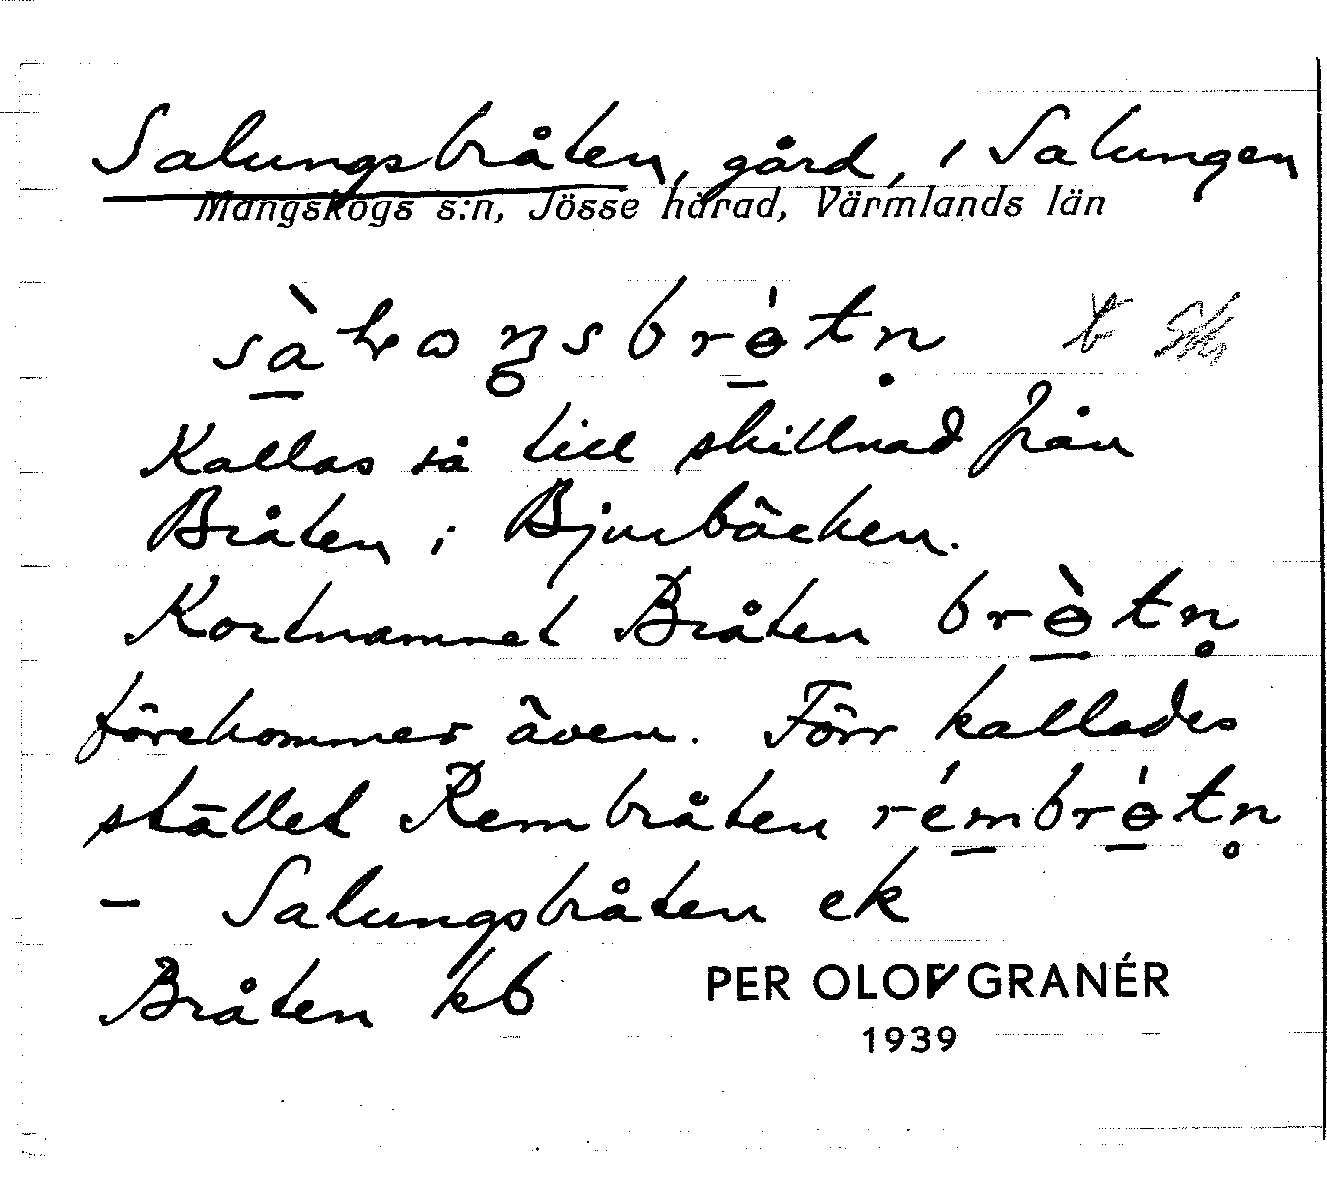 Salungsbråten, gård, i Salungen
Mangskogs s:n, Jösse härad, Värmlands län
Kallas så till skillnad från
Bråten i Bjurbäcken.
Kortnamnet Bråten brɵ̀tn̥
förekommer även. Förr kallades
stället Rembråten rémbrɵ́tn̥
– Salungsbråten ek
Bråten kb
PER OLOF GRANÉR
1939